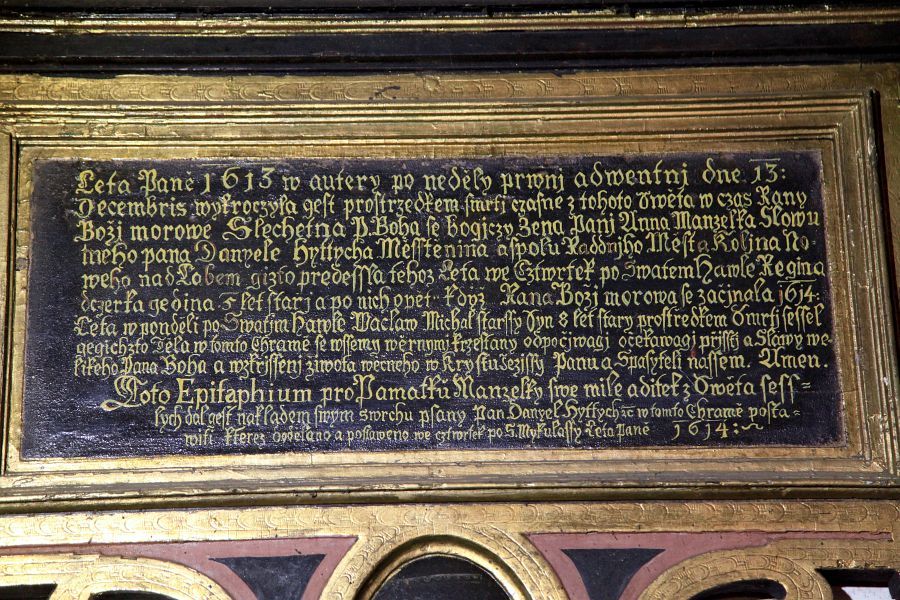 Leta Paně 1613 w autery po neděly prwnj adwentnj dne 13:
Decembris wykročyla gest prostrzedkem smrti czasne z tohoto Swěta w czas Rany
Boži morowe Slechetna P. Boha se bogiczy Žena Panj Anna Manzelka Slowu
tneho pana Danyele Hyttycha Messtěnina a spolu Raddnjho Města Kolina No-
weho nad Labem gizto predessla tehoz Leta we Cztwrtek po Swatem Hawle Regina
dczerka gedina 5 let starj a po nich opet kdyz Rana Boži morowa se začjnala 1614:
Leta w pondělj po Swatim Hawle Waclaw Michal starssy Syn 8 let stary prostredkem Smrti sessel
gegichzto Těla w tomto Chramě se wssemy wěrnymi krzestany odpočjwagj očekawagj prjssti a Slawy we-
likeho Pana Boha a wzkřjssenj žiwota wečneho w Krystu Ježissj Panu a Spasyteli nassem. Amen.
Toto Epitaphium pro Pamatku Manzelky swe mile a ditek z Swěta sess-
lych dal gest nakladem swym swrchu psany Pan Danyel Hyttych w tomto Chramě posta-
witi kterez dodelano a postaweno we cztwrtek po S. Mykulassy Leta Paně 1614:~